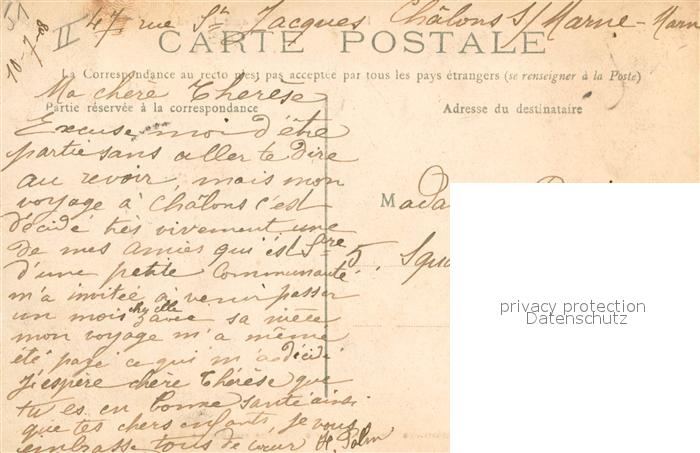 47 rue St Jacques Châlons S/Marne - Marn
51
II
10-7-08
CARTE POSTALE
La Correspondance au recto n'est pas acceptée par tous les pays étrangers (se renseigner à la Poste)
Partie réservée à la correspondance
Adresse du destinataire
Ma chère Therèse
Excuse moi d'être
partie sans aller te dire
au revoir, mais mon
voyage à Châlons c'est
décidé très vivement une
de mes amies qui est Sre
d'une petite Communauté
m'a invitée à venir passer
un mois chez elle avec sa nièce
mon voyage m'a même
été payé ce qui m'a décidé
J'espère chère Thérèse que
tu es en bonne santé ainsi
que tes chers enfants, je vous
embrasse tous de cœur
Mada
5. Squa
privacy protection
Datenschutz